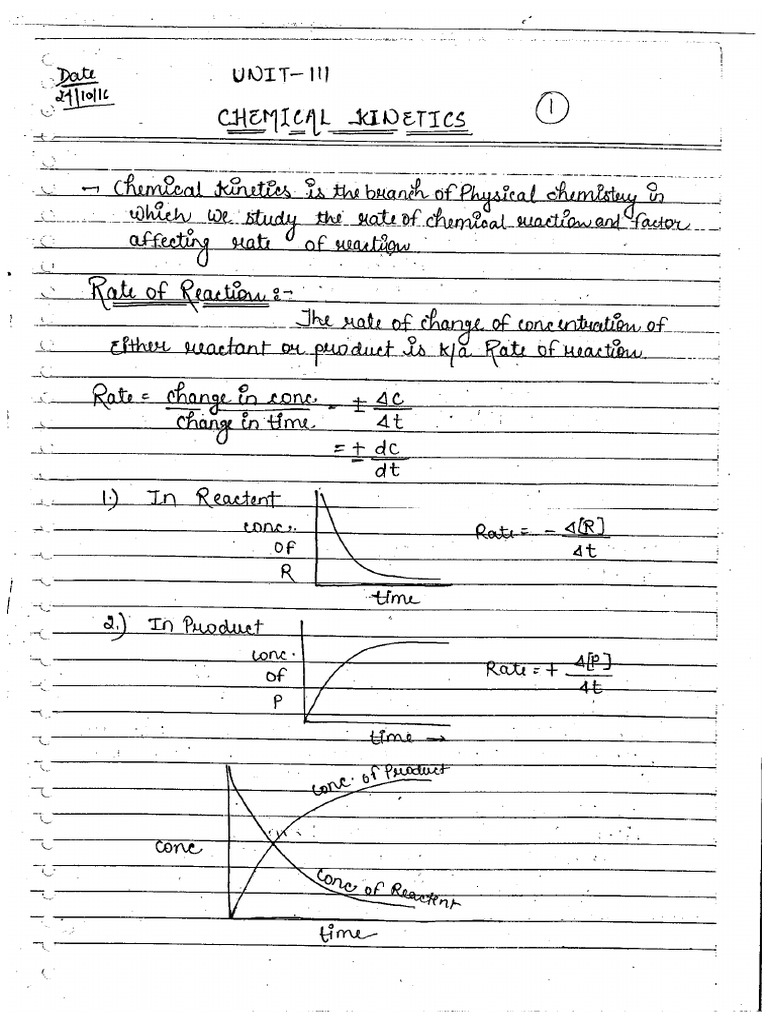 Date
24/10/16
UNIT-III
CHEMICAL KINETICS
1
→ Chemical Kinetics is the branch of Physical chemistry in
which we study the rate of chemical reaction and factor
affecting rate of reaction.
Rate of Reaction:-
The rate of change of concentration of
Either reactant or product is k/a Rate of reaction.
Rate = change in conc. / change in time = ± Δc / Δt
= ± dc / dt
1.) In Reactent
conc. of R
time
Rate = - Δ[R] / Δt
2.) In Product
conc. of P
time →
Rate = + Δ[P] / Δt
conc. of Product
conc
conc of Reactent
time